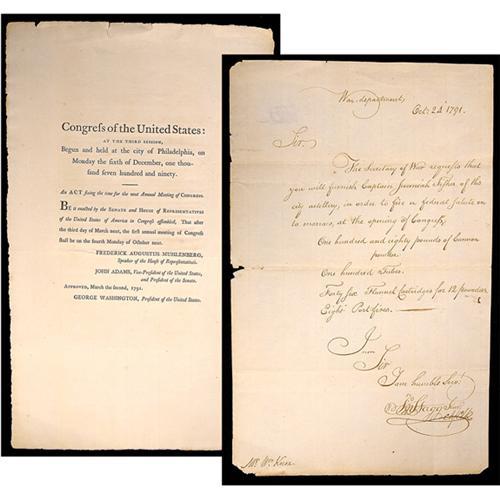 Congrefs of the United States:
AT THE THIRD SESSION,
Begun and held at the city of Philadelphia, on
Monday the sixth of December, one thou-
sand seven hundred and ninety.
An ACT fixing the time for the next Annual Meeting of CONGRESS.
BE it enacted by the SENATE and HOUSE of REPRESENTATIVES
of the United States of America in Congress assembled, That after
the third day of March next, the first annual meeting of Congress
shall be on the fourth Monday of October next.
FREDERICK AUGUSTUS MUHLENBERG,
Speaker of the House of Representatives.
JOHN ADAMS, Vice-President of the United States,
and President of the Senate.
APPROVED, March the second, 1791.
GEORGE WASHINGTON, President of the United States.
War department,
Oct: 24 1791.
Sir,
The Secretary of War requests that
you will furnish Captain Jeremiah Fisher of the
city artillery, in order to fire a federal salute on
to morrow, at the opening of Congress
One hundred and eighty pounds of Cannon
powder.
One hundred Tubes.
Forty six Flannel Cartridges for 12 pounder
Eight Portfires.
I am
Sir
Your humble Servt
Jno Stagg Junr
Mr. Wm. Knox